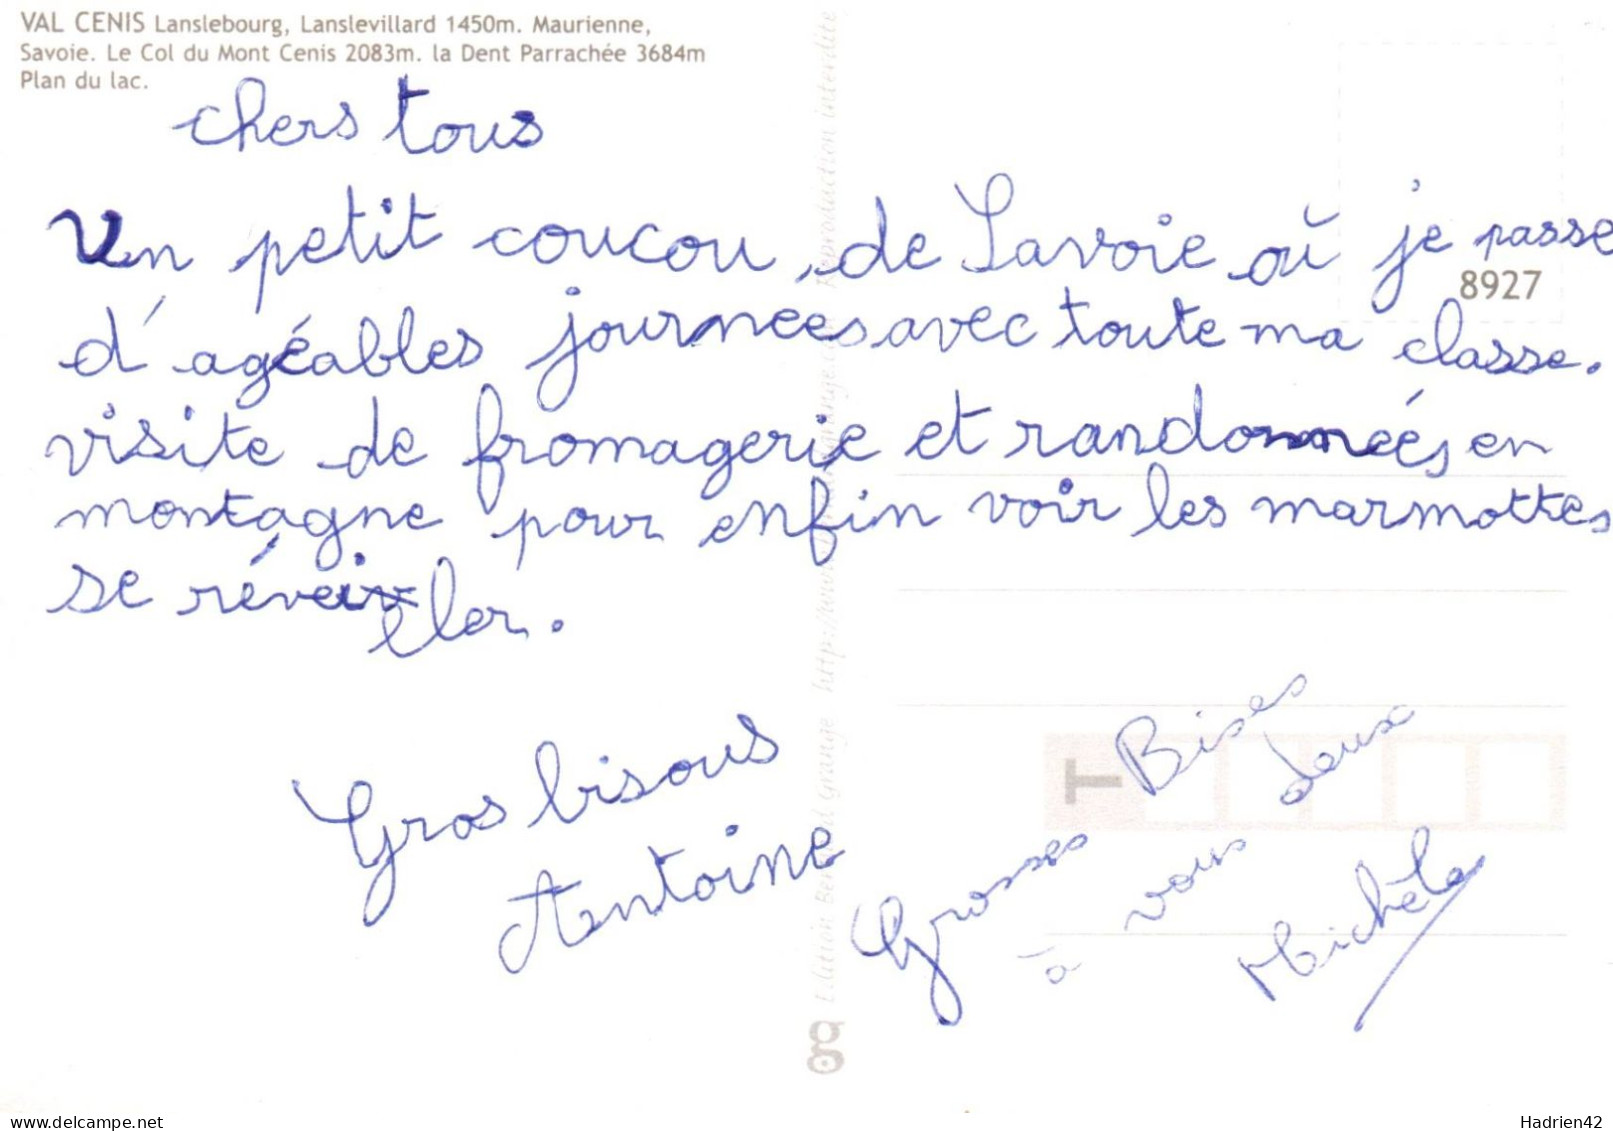 VAL CENIS Lanslebourg, Lanslevillard 1450m. Maurienne,
Savoie. Le Col du Mont Cenis 2083m. la Dent Parrachée 3684m
Plan du lac.
chers tous
Un petit coucou, de Savoie où je passe
8927
d'agéables journées avec toute ma classe.
visite de fromagerie et randonnées, en
montagne pour enfin voir les marmottes
se réveiller.
Gros bisous
Antoine
Grosses Bises
à vous deux
Michèle
T
Edition Bernard Grange http://www. Reproduction interdite
www.delcampe.net
Hadrien42